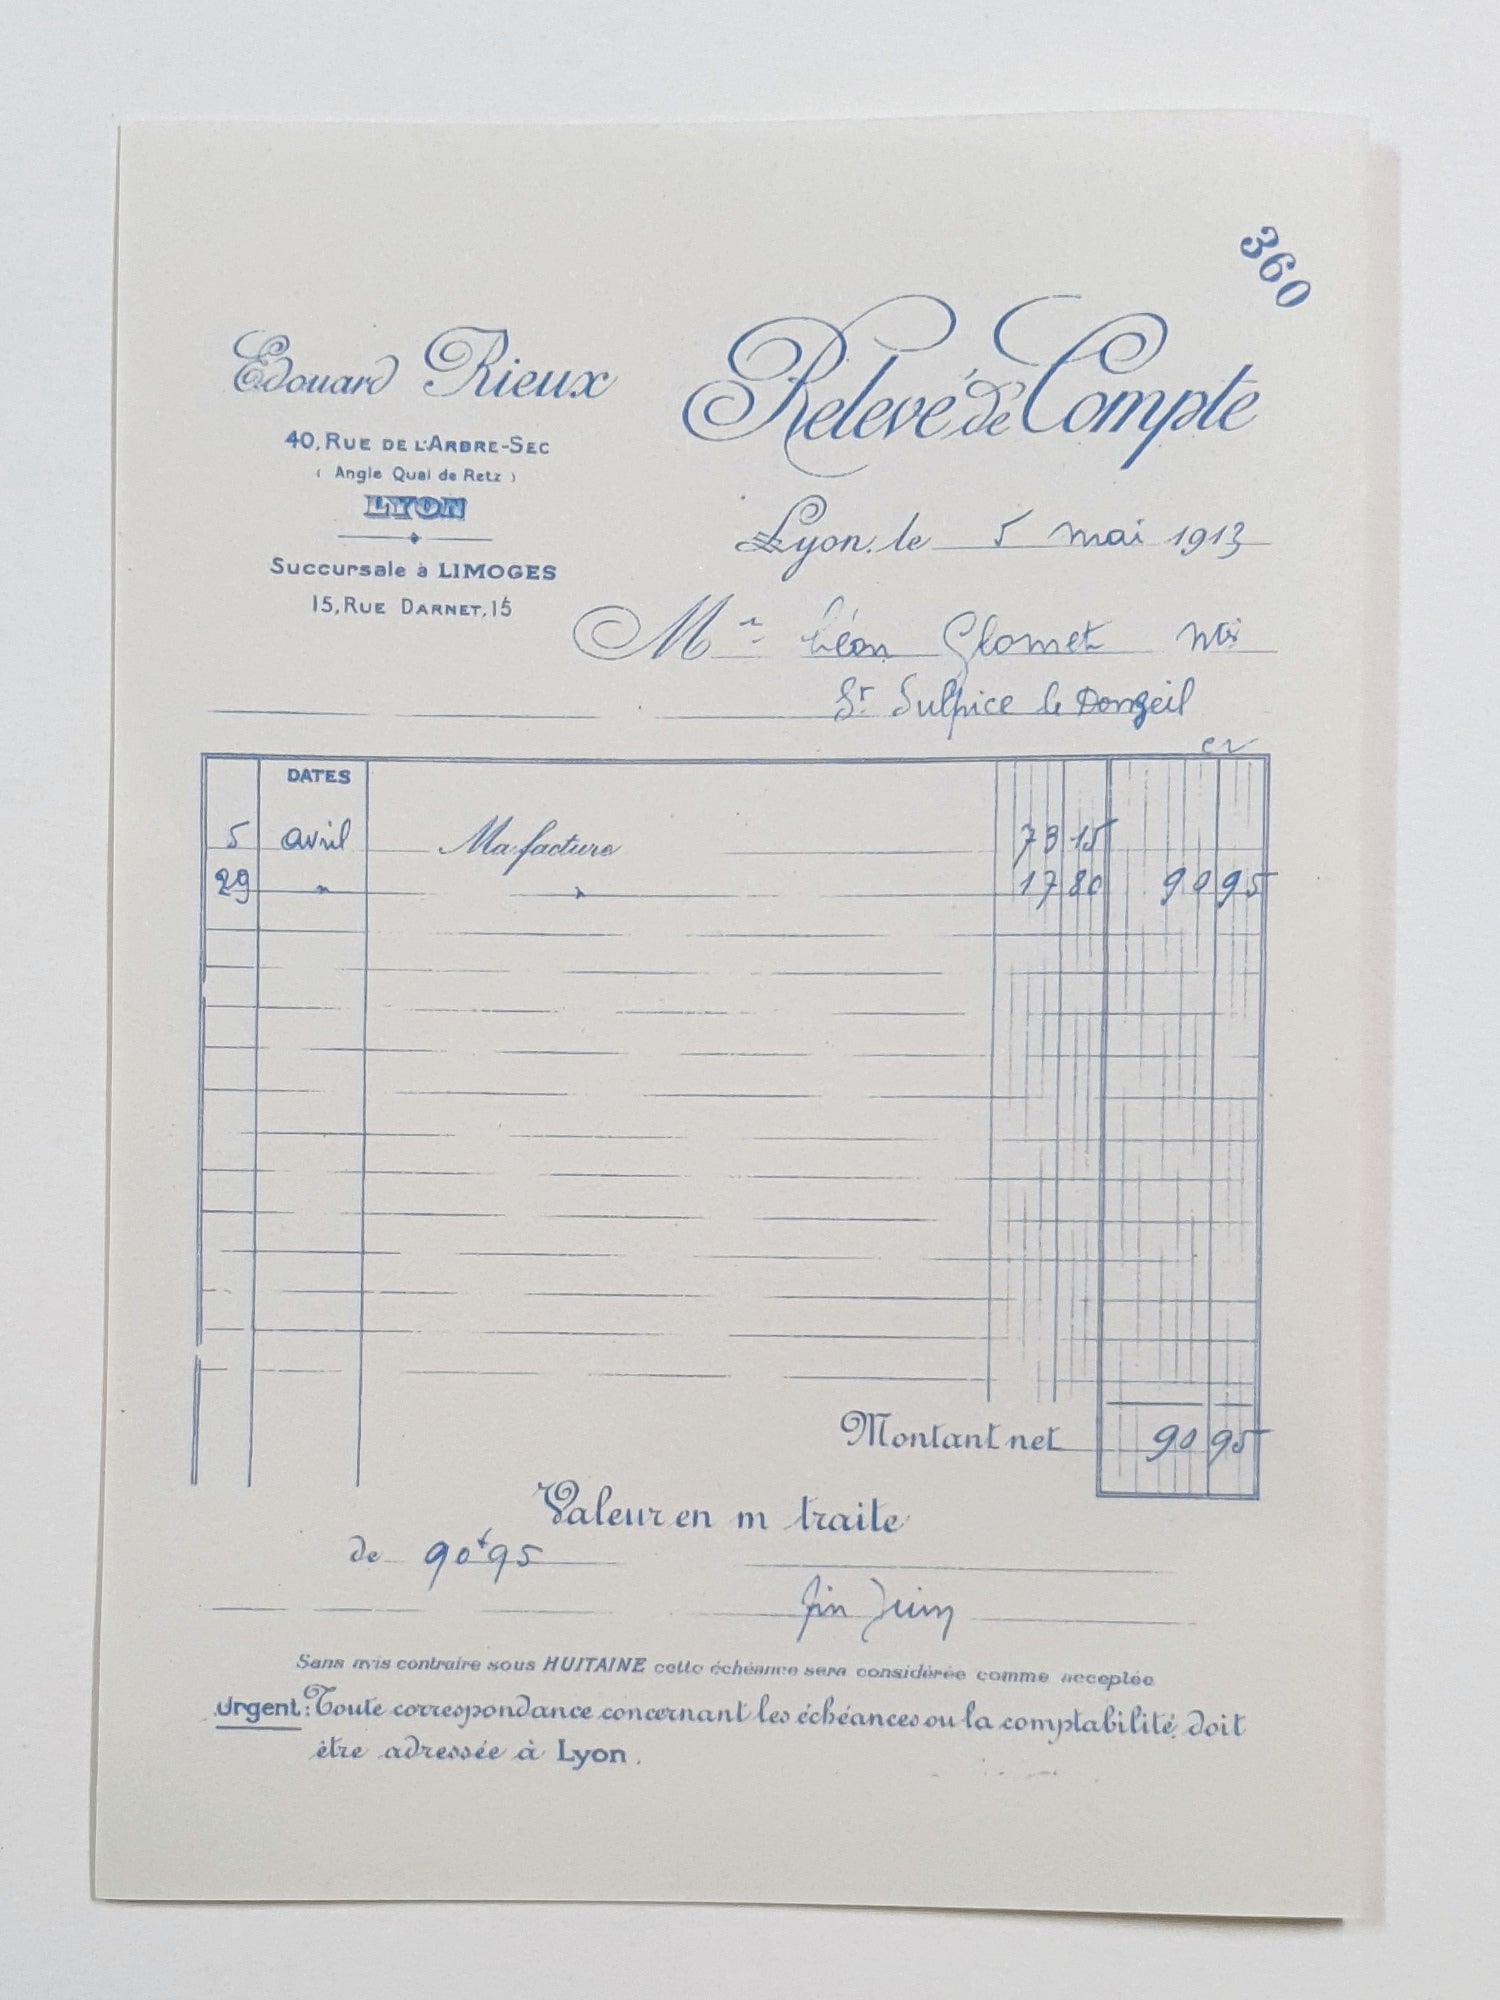 360
Edouard Rieux
Relevé de Compte
40, RUE DE L'ARBRE-SEC
( Angle Quai de Retz )
LYON
Succursale à LIMOGES
15, RUE DARNET, 15
Lyon, le 5 mai 1913
Mr Léon Glomet Nts
St Sulpice le Donzeil
DATES
5 avril Ma facture 73 15
29 " " 17 80 90 95
Montant net 90 95
Valeur en m traite
de 90f95
fin Juin
Sans avis contraire sous HUITAINE cette échéance sera considérée comme acceptée
Urgent: Toute correspondance concernant les échéances ou la comptabilité doit
être adressée à Lyon.